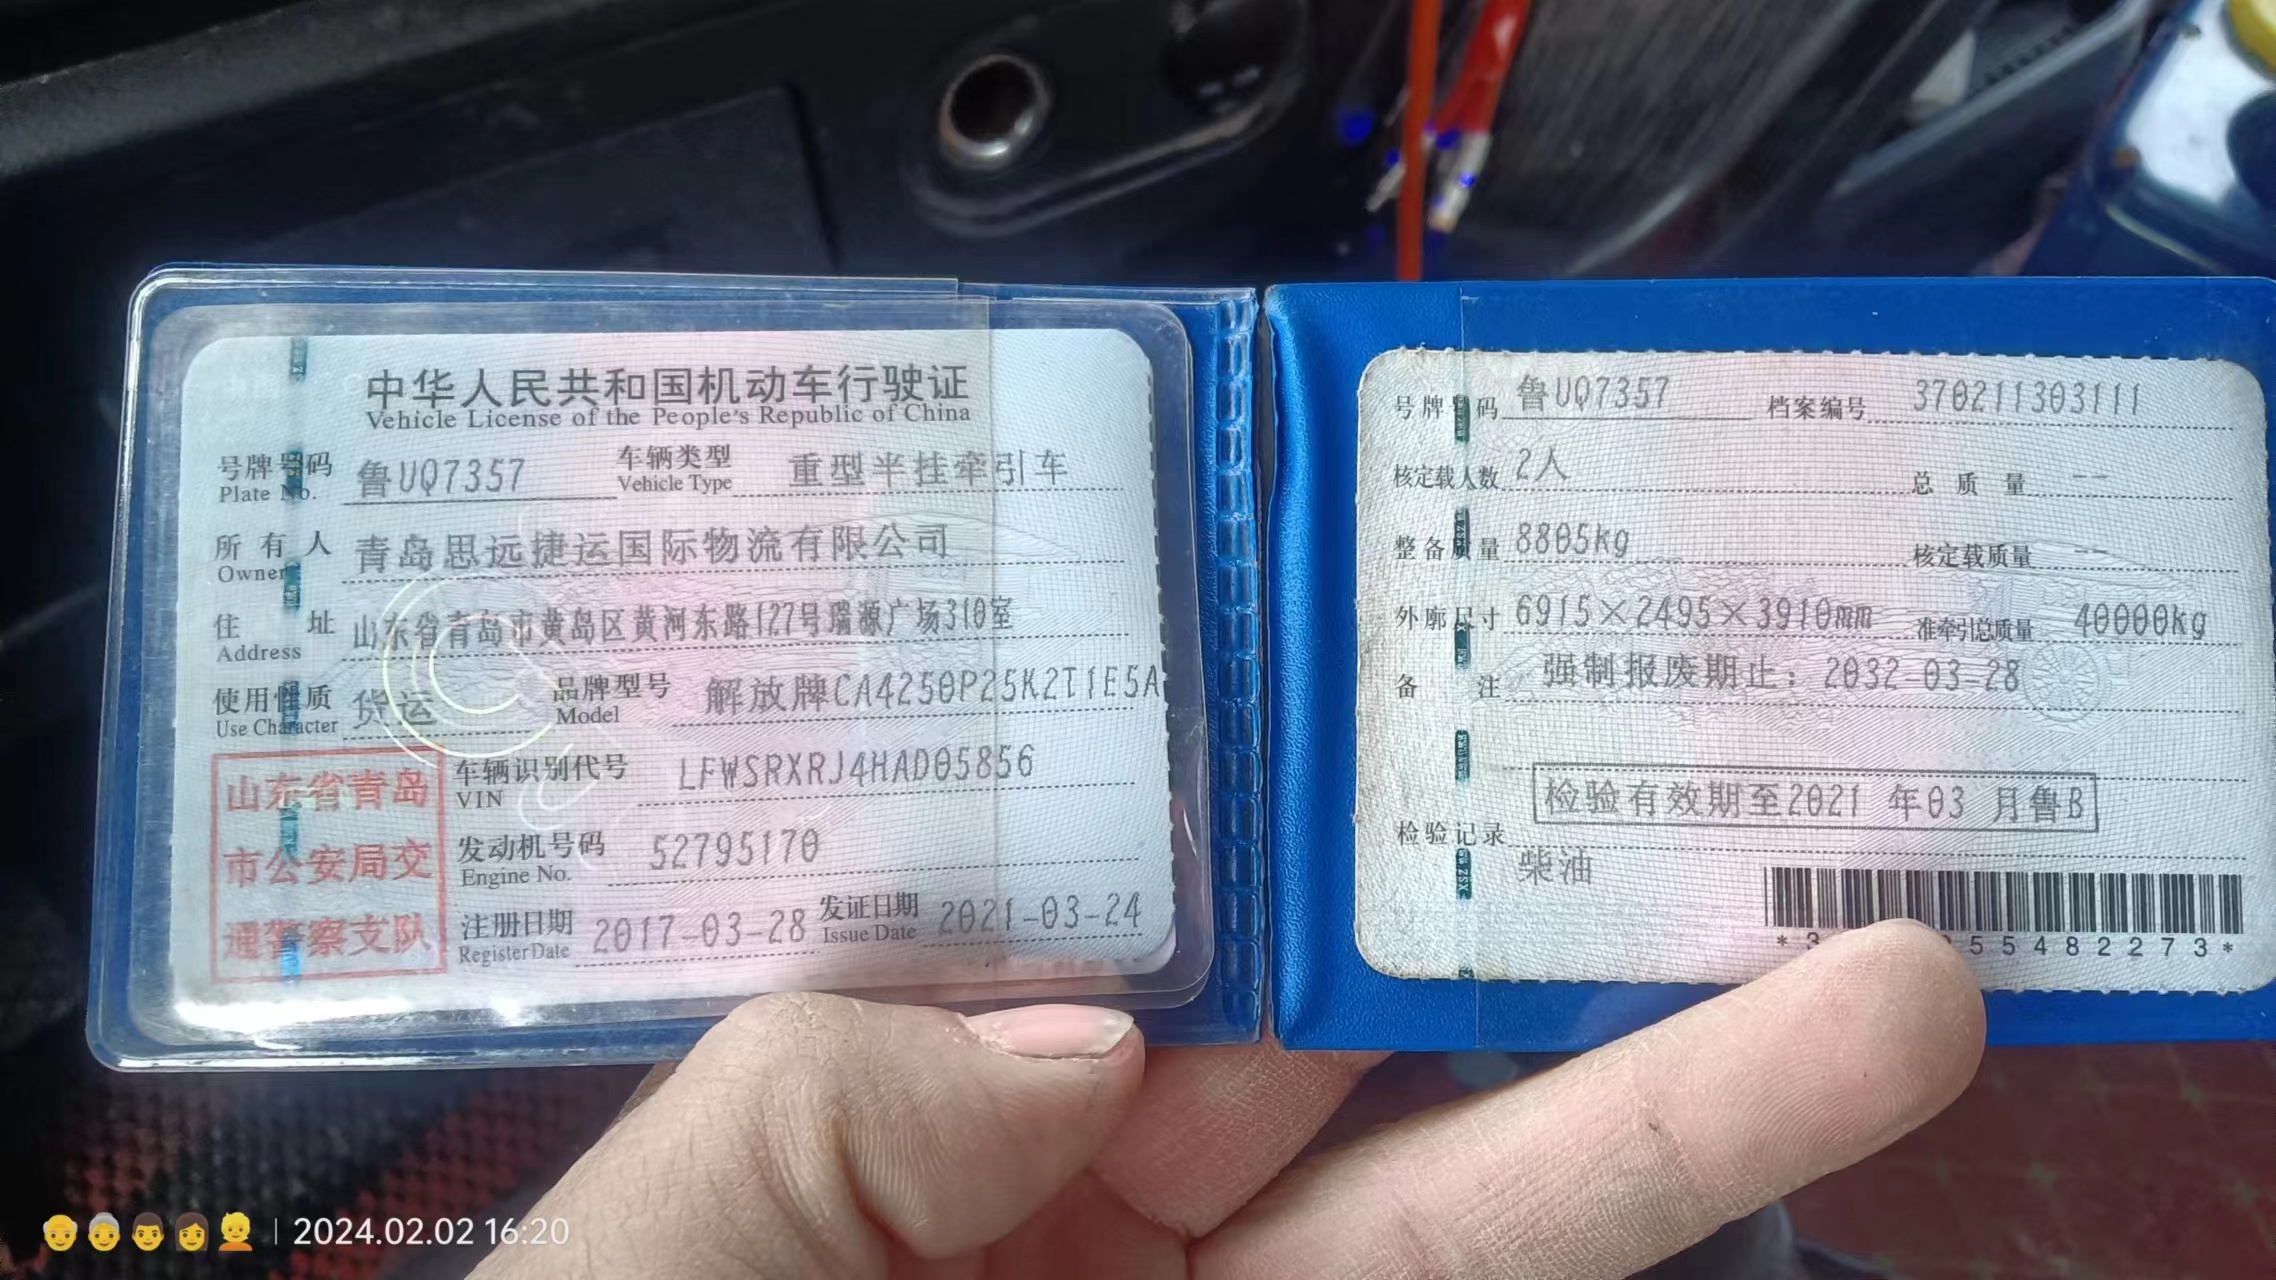 中华人民共和国机动车行驶证
Vehicle License of the People's Republic of China
号牌号码 鲁UQ7357 车辆类型 重型半挂牵引车
Plate No. Vehicle Type
所有人 青岛思远捷运国际物流有限公司
Owner
住址 山东省青岛市黄岛区黄河东路127号瑞源广场310室
Address
使用性质 货运 品牌型号 解放牌CA4250P25K2T1E5A
Use Character Model
山东省青岛
市公安局交
通警察支队
车辆识别代号 LFWSRXRJ4HAD05856
VIN
发动机号码 52795170
Engine No.
注册日期 2017-03-28 发证日期 2021-03-24
Register Date Issue Date
号牌号码 鲁UQ7357 档案编号 370211303111
核定载人数 2人 总质量 --
整备质量 8805kg 核定载质量 --
外廓尺寸 6915×2495×3910mm 准牵引总质量 40000kg
备注 强制报废期止：2032-03-28
检验有效期至2021 年03 月鲁B
检验记录
柴油
55482273*
2024.02.02 16:20